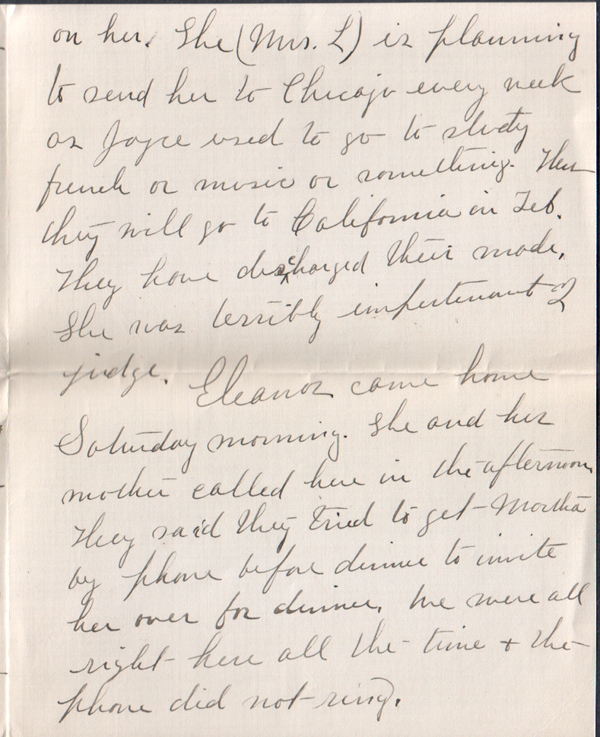 on her. She (Mrs. L) is planning
to send her to Chicago every week
as Joyce used to go to study
french or music or something. Then
they will go to California in Feb.
They have discharged their made,
She was terribly impertenant I
judge. Eleanor came home
Saturday morning. She and her
mother called here in the afternoon
They said they tried to get Martha
by phone before dinner to invite
her over for dinner. We were all
right here all the time + the
phone did not ring.